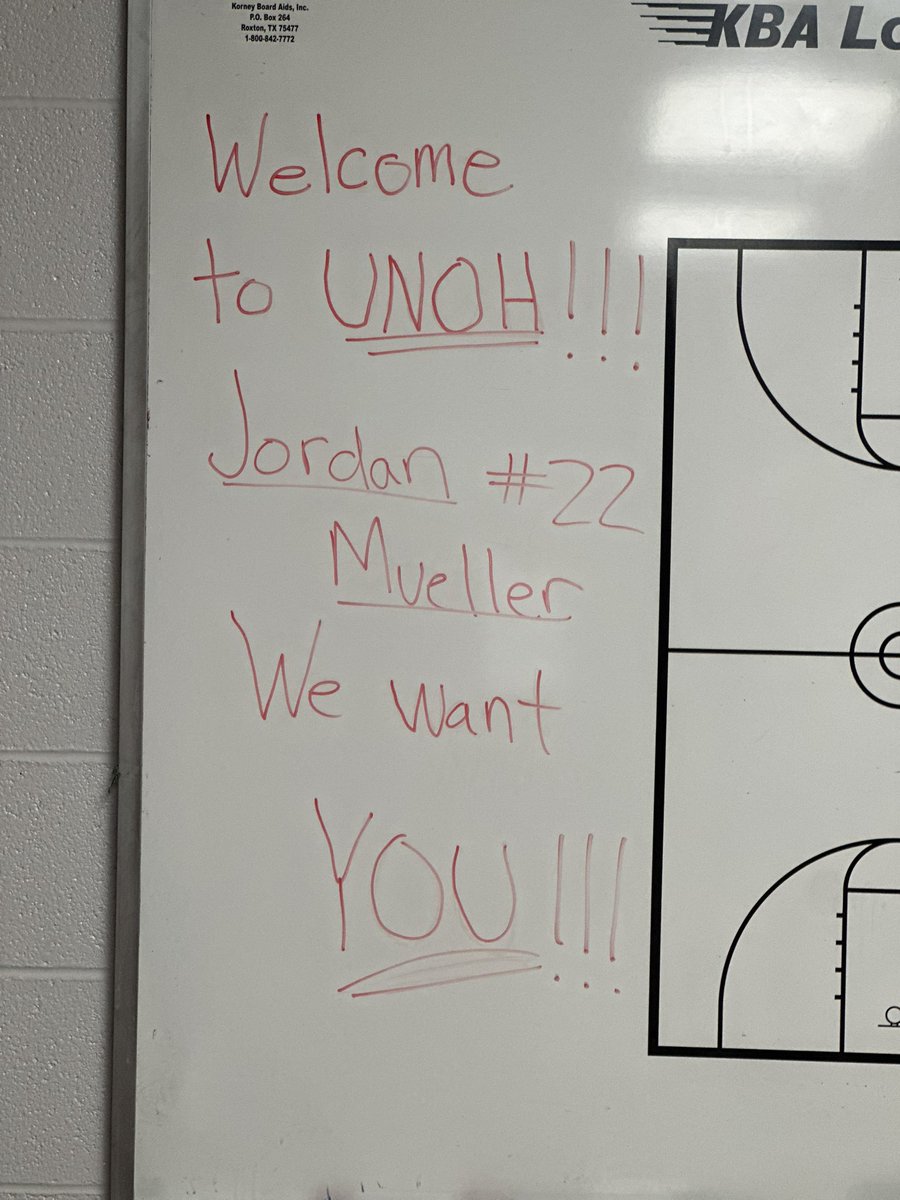 Korney Board Aids, Inc.
P.O. Box 264
Roxton, TX 75477
1-800-842-7772
KBA Lo
Welcome
to UNOH!!!
Jordan #22
Mueller
We want
YOU!!!